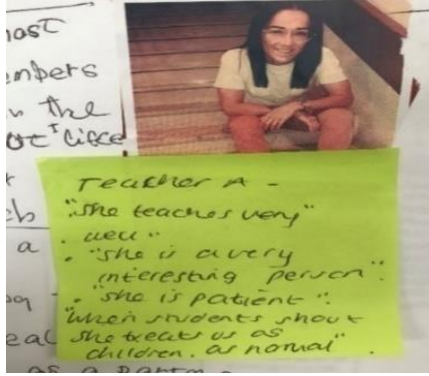 most
embers
n the
ot "life
Teacher A -
"she teaches very"
. well "
. "she is a very
interesting person".
. "she is patient".
"When students shout
she treats us as
children. as normal".
ch
a
eal
as a